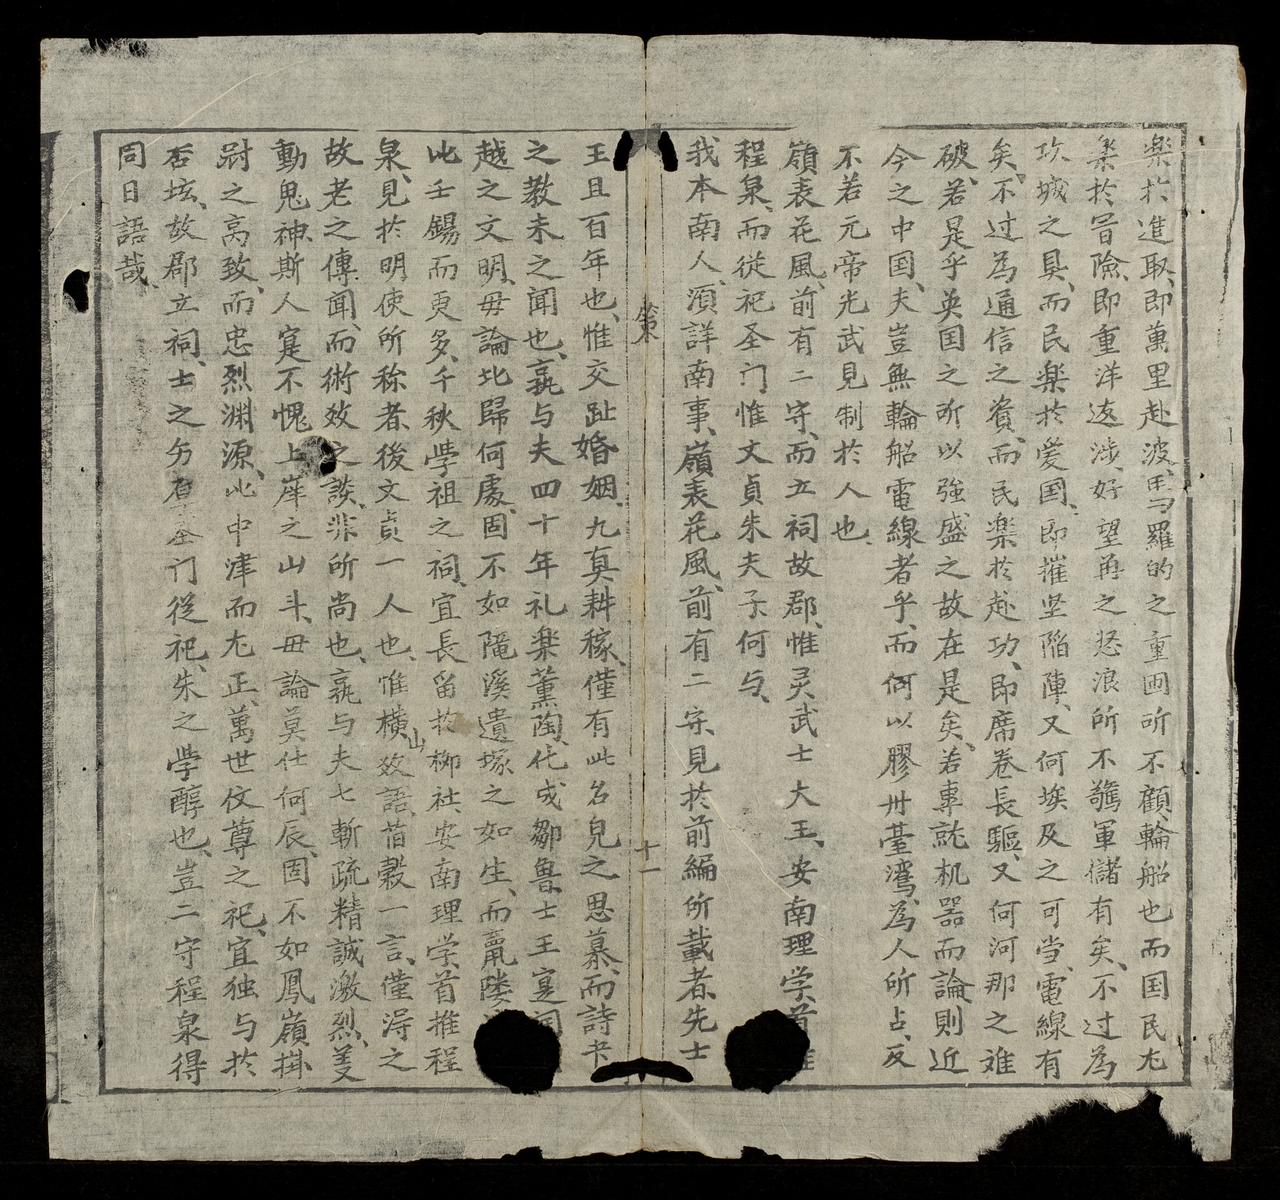 楽扵進取、即萬里赴波、馬羅的之重洒所不顧、輪船也而国民尤
楽扵冒險、即重洋返涉、好望再之怒浪所不驚、軍儲有矣、不过為
攻城之具、而民楽扵爱国、即摧坚陷陣、又何埃及之可当、電線有
矣、不过為通信之資、而民楽扵赴功、即席卷長驅、又何河那之难
破、若是乎英国之所以強盛之故在是矣、若專就机噐而論則近
今之中国、夫豈無輪船電線者乎、而何以膠州臺湾為人所占、反
不若元帝光武見制扵人也、
嶺表花風、前有二守、而立祠故郡、惟灵武士大王、安南理学、首
程泉、而従祀圣门惟文貞朱夫子何与、
我本南人、湏詳南事、嶺表花風、前有二守、見扵前編所載者、先士
策 十一
王且百年也、惟交趾婚姻、九真耕稼、僅有此名皃之思慕、而詩书
之教未之聞也、孰与夫四十年礼楽薰陶、化成鄒魯、士王寔
越之文明、毋論北歸何處、固不如隴溪遺塚之如生、而
此壬錫而更多、千秋学祖之祠、宜長畱扵柳社、安南理学、首推程
泉、見扵明使所称者、後文貞一人也、惟横山效語、昔穀一言、僅淂之
故老之傳聞、而術效之談、非所尚也、孰与夫七斬疏精誠激烈、
動鬼神、斯人寔不愧上庠之山斗、毋論莫仕何辰、固不如鳳嶺掛
尉之高致、而忠烈渊源、此中津而尤正、萬世伩尊之祀、宜独与扵
否垓、故郡立祠、士之圣门従祀、朱之学醇也、豈二守程泉得
同日語哉、